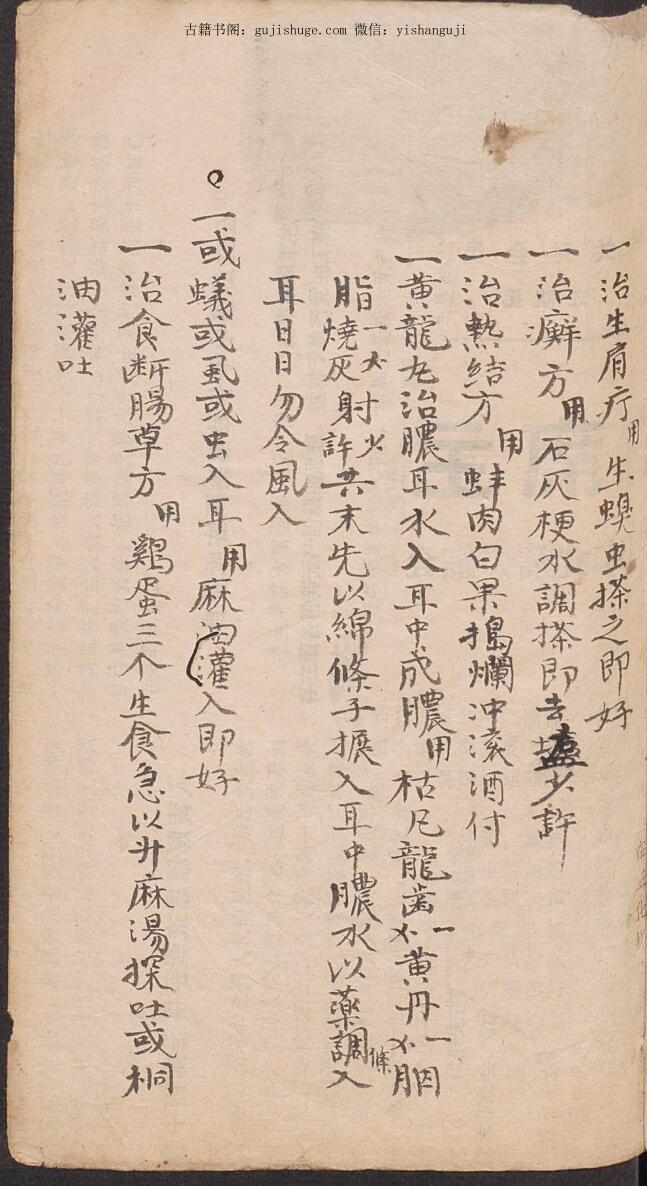 古籍书阁：gujishuge.com 微信：yishanguji
一治生肩疔用生螝虫搽之即好
一治癬方用石灰梗水調搽即去盐少許
一治熱結方用蚌肉白果搗爛冲滚酒付
一黄龍丸治膿耳水入耳中成膿用枯凡龍歯一黄丹一胭
脂一燒灰射少許共末先以綿條子搌入耳中膿水以藥調條入
耳日日勿令風入
一或蟻或虱或虫入耳用麻油灌入即好
一治食断腸草方用鷄蛋三个生食急以升麻湯探吐或桐
油灌吐